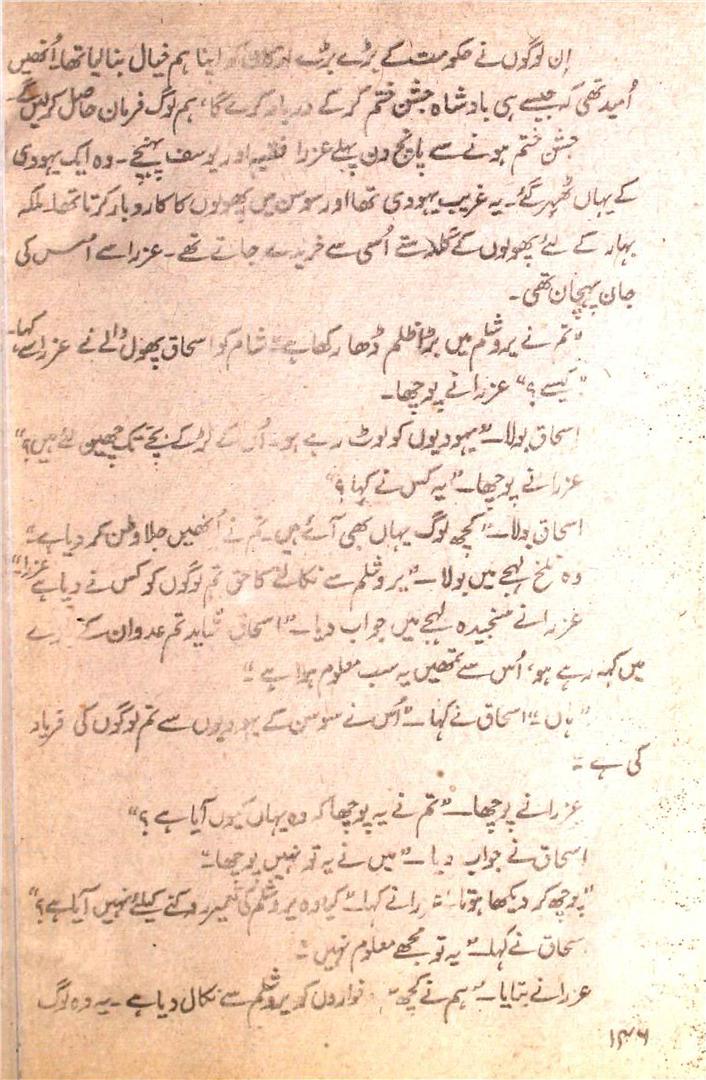 اِن لوگوں نے حکومت کے بڑے بڑے ارکان کو اپنا ہم خیال بنا لیا تھا۔ اُنھیں
اُمید تھی کہ جیسے ہی بادشاہ جشن ختم کرکے دربار کرے گا، ہم لوگ فرمان حاصل کرلیں گے۔
جشن ختم ہونے سے پانچ دن پہلے عزرا فقیہہ اور یوسف پہنچے۔ وہ ایک یہودی
کے یہاں ٹھہر گئے۔ یہ غریب یہودی تھا اور سوسن میں پھولوں کا کاروبار کرتا تھا۔ ملکہ
بہار کے لئے پھولوں کے گلدستے اُسی سے خریدے جاتے تھے۔ عزرا سے اُس کی
جان پہچان تھی۔
"تم نے یروشلم میں بڑا ظلم ڈھا رکھا ہے۔" شام کو اسحاق پھول والے نے عزرا سے کہا۔
"کیسے؟" عزرا نے پوچھا۔
اسحاق بولا۔ "یہودیوں کو لوٹ رہے ہو۔ اُن کے لڑکے بچے تک چھین لئے ہیں؟"
عزرا نے پوچھا۔ "یہ کس نے کہا؟"
اسحاق بولا۔ "کچھ لوگ یہاں بھی آئے ہیں۔ تم نے اُنھیں جلاوطن کر دیا ہے۔"
وہ تلخ لہجے میں بولا۔ "یروشلم سے نکالنے کا حق تم لوگوں کو کس نے دیا ہے عزرا۔"
عزرا نے سنجیدہ لہجے میں جواب دیا۔ "اسحاق شاید تم عدوان کے بارے
میں کہہ رہے ہو، اُس سے تمھیں یہ سب معلوم ہوا ہے۔"
"ہاں۔" اسحاق نے کہا۔ "اُس نے سوسن کے یہودیوں سے تم لوگوں کی فریاد
کی ہے۔
عزرا نے پوچھا۔ "تم نے یہ پوچھا کہ وہ یہاں کیوں آیا ہے؟"
اسحاق نے جواب دیا۔ "میں نے یہ تو نہیں پوچھا۔"
"پوچھ کر دیکھا ہوتا۔" عزرا نے کہا۔ "کیا وہ یروشلم کی تعمیر روکنے کیلئے نہیں آیا ہے؟"
سحاق نے کہا۔ "یہ تو مجھے معلوم نہیں۔"
عزرا نے بتایا۔ "ہم نے کچھ کو یروشلم سے نکال دیا ہے۔ یہ وہ لوگ
۱۳۶